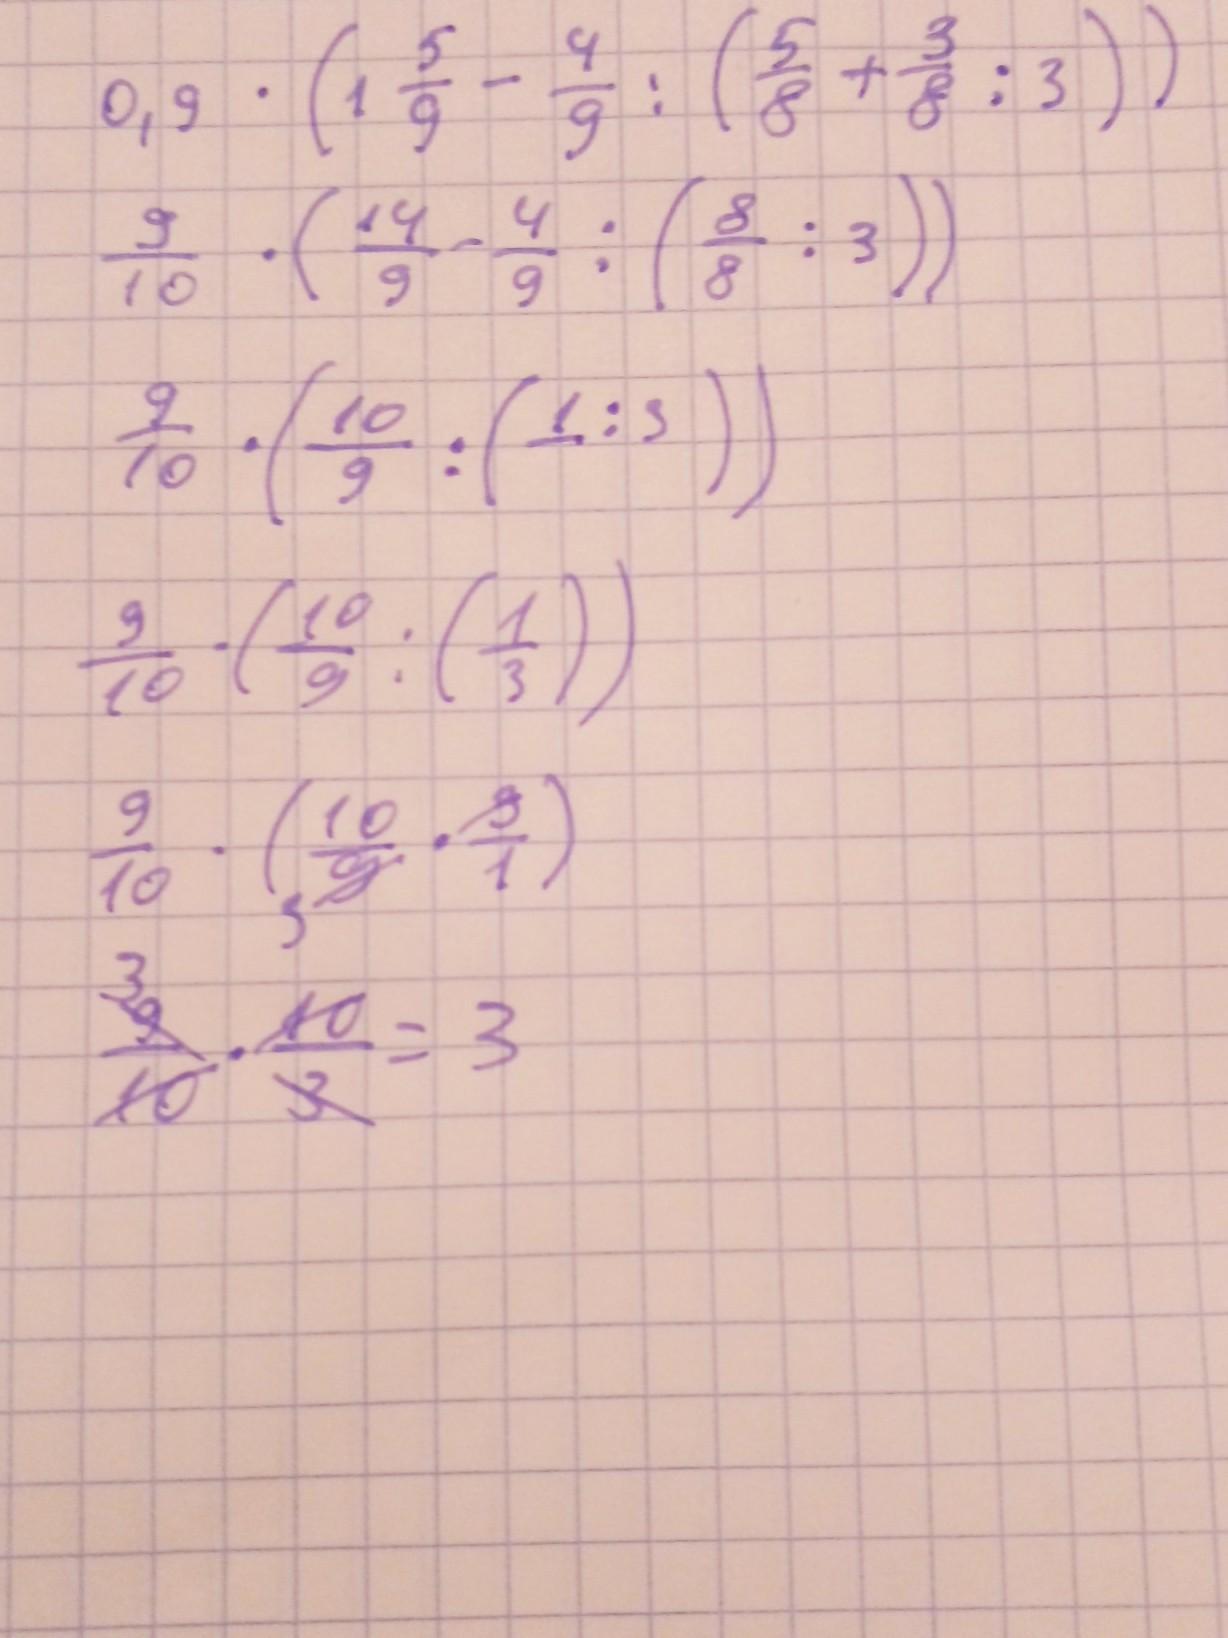 0,9 · (1 5/9 - 4/9 : (5/8 + 3/8 : 3))
9/10 · (14/9 - 4/9 : (8/8 : 3))
9/10 · (10/9 : (1 : 3))
9/10 · (10/9 : (1/3))
9/10 · (10/9 · 3/1)
3
3
9/10 · 10/3 = 3